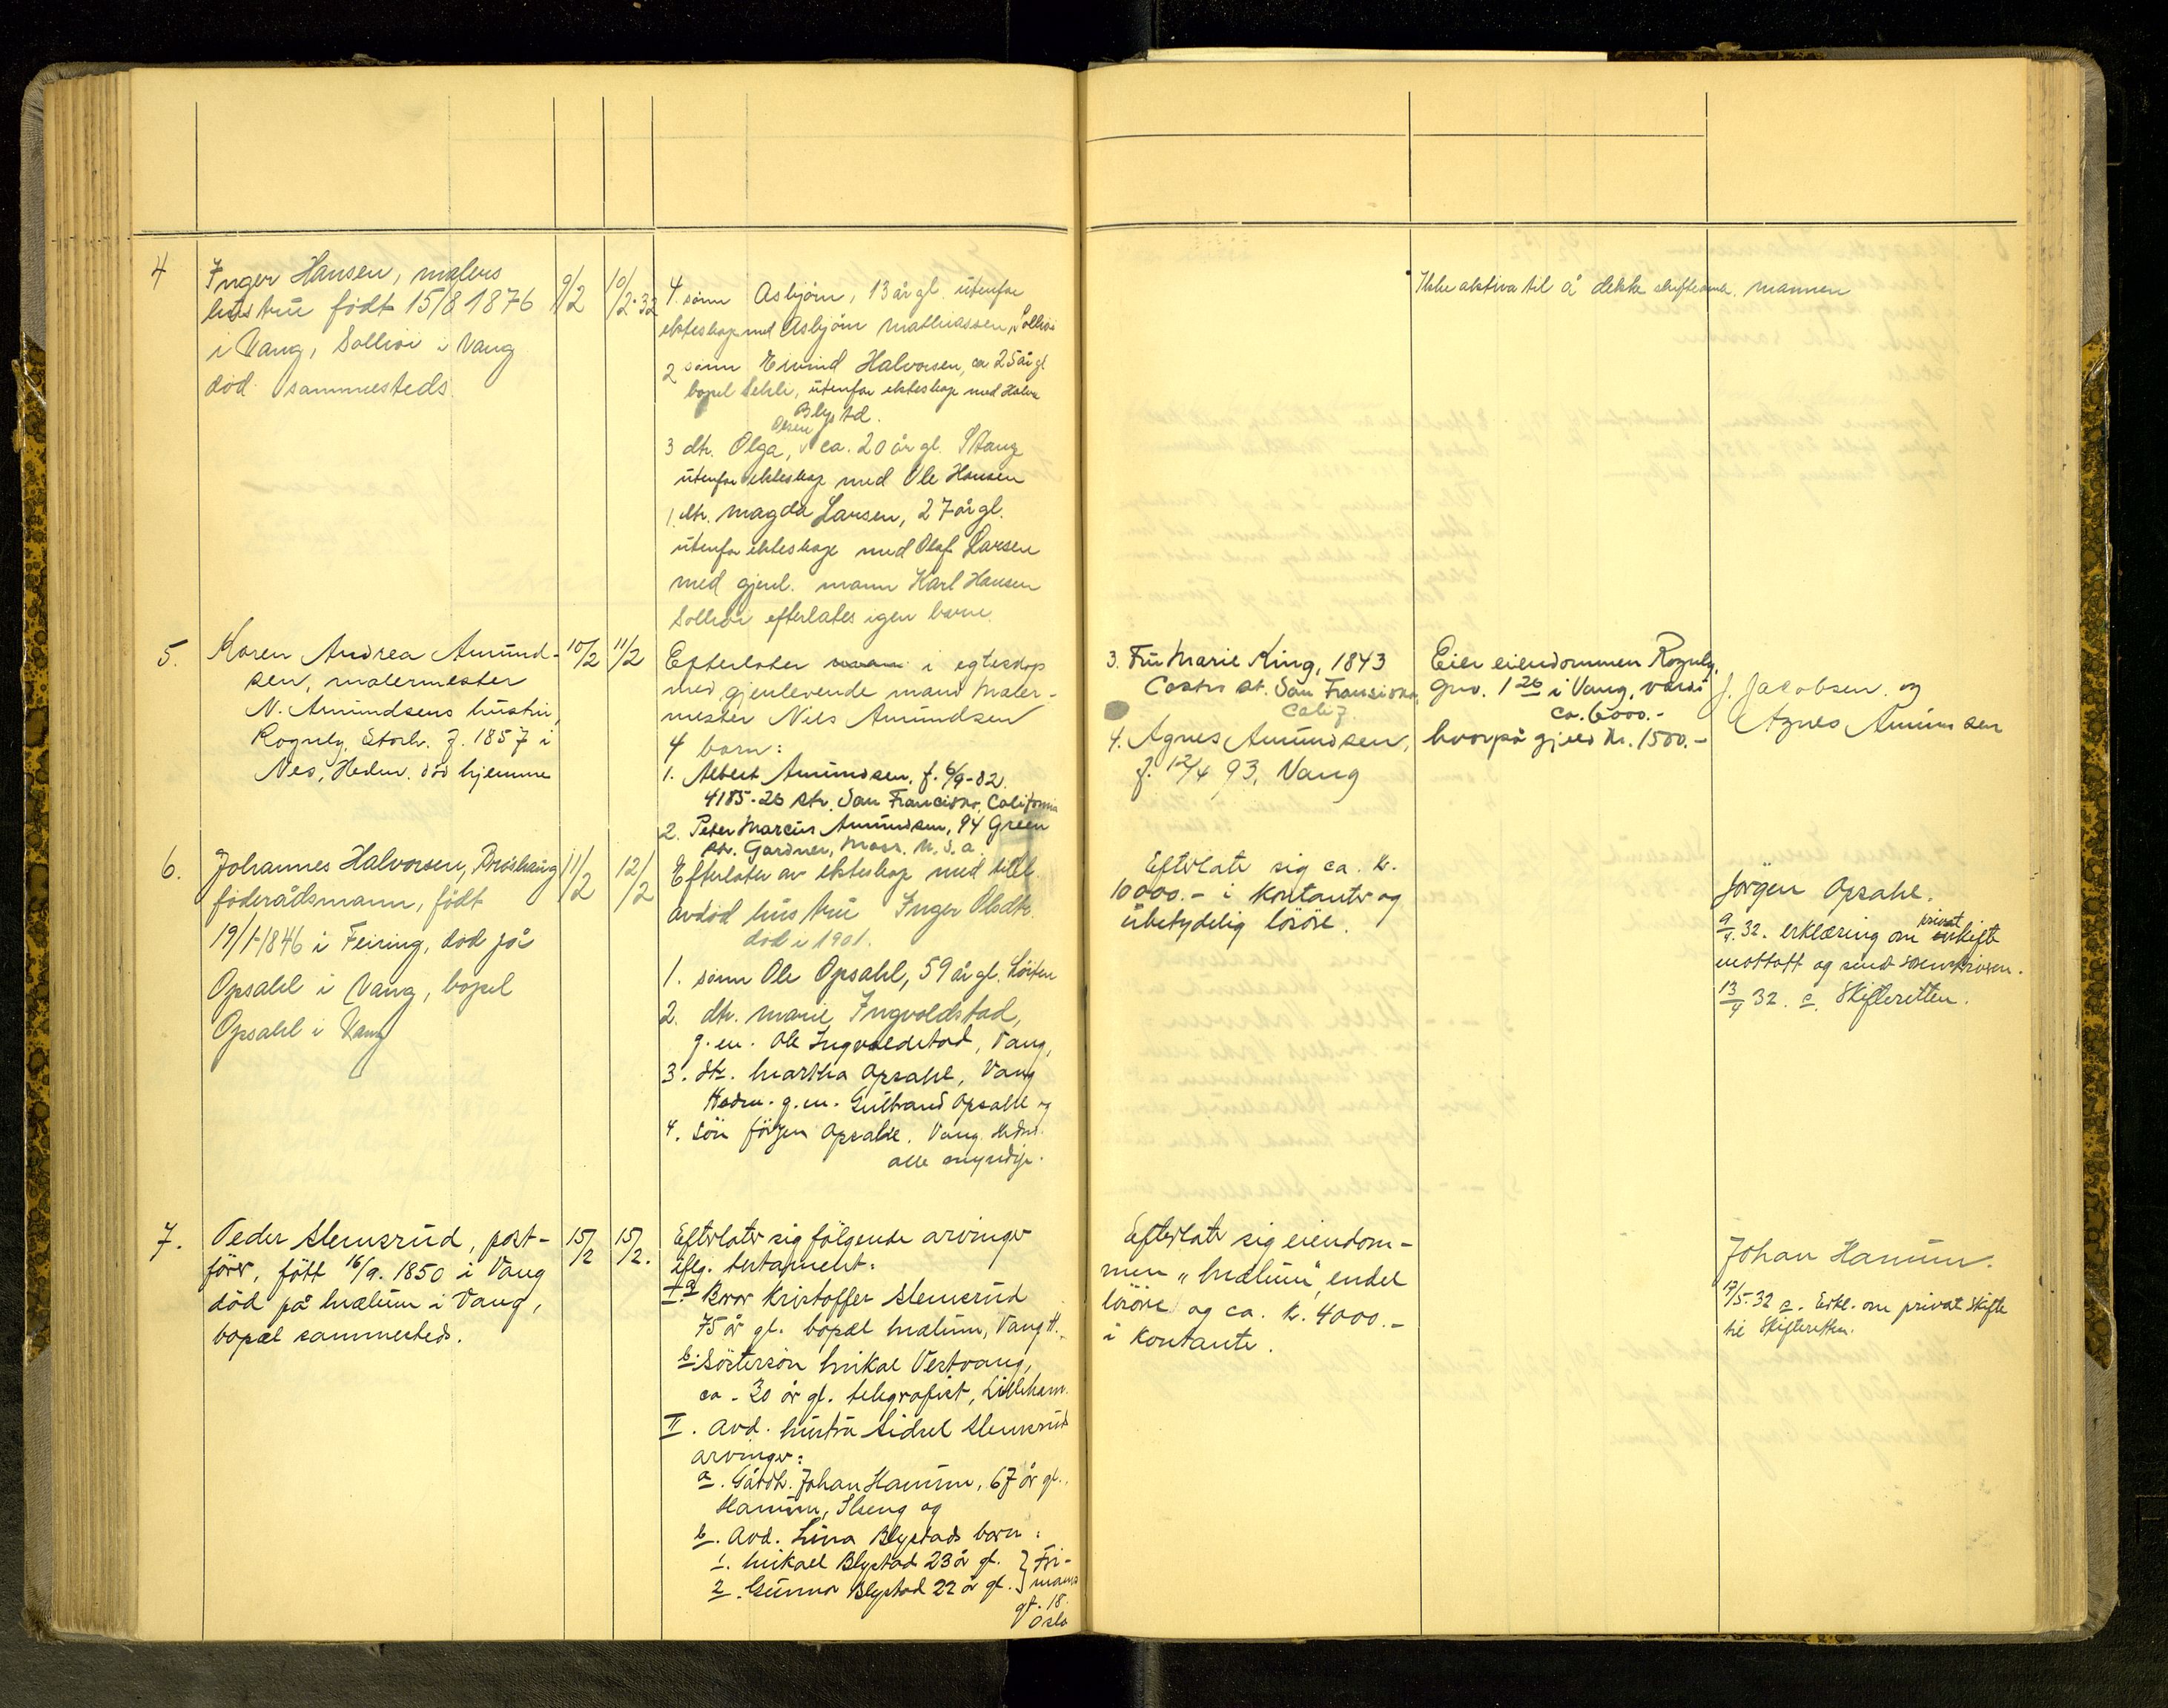 4
Inger Hansen, malers
hustru født 15/8 1876
i Vang, Solliva i Vang
død sammesteds.
9/2
10/2-32
4. sønn Asbjörn, 13 år gl. utenfor
ekteskap med Asbjörn Mathiassen,
2 sønn Eivind Halvorsen, ca 25 år gl
bopel utenfor ekteskap med Halvor
Blystad.
3 dtr. Olga, Olsen ca. 20 år gl. Stange
utenfor ekteskap med Ole Hansen
1. dtr. Magda Larsen, 27 år gl.
utenfor ekteskap med Olaf Larsen
med gjenl. mann Karl Hansen
efterlates igen barn.
Ikke aktiva til å dekke mannen
5.
Karen Andrea Amund-
sen, malermester
N. Amundsens hustru,
Rognly, Storh. f. 1857 i
Nes, Hedm. död hjemme
10/2
11/2
Efterlater i egteskap
med gjenlevende mann maler-
mester Niels Amundsen
4 barn:
1. Albert Amundsen, f. 6/9-82.
4185-26 str. San Francisko, California
2. Peter Marcus Amundsen, 94 Green
str. Gardner, Mass. U.S.A.
3. Fru Marie King, 1843
Castro st. San Fransisko,
Calif.
4. Agnes Amundsen,
f. 12/4 93, Vang
Eier eiendommen Rognly,
Gnr. 1 26 i Vang, verdi
ca. 6000.-
hvorpå gjeld kr. 1500.-
J. Jacobsen og
Agnes Amundsen
6.
Johannes Halvorsen, Bröshaug
föderådsmann, født
19/1-1846 i Feiring, död på
Opsahl i Vang, bopel
Opsahl i Vang
11/2
12/2
Efterlater av ekteskap med tidl.
avdöd hustru Inger Olsdtr.
död i 1901.
1. sønn Ole Opsahl, 59 år gl. Löiten
2. dtr. Marie Ingvoldstad,
g.m. Ole Ingvoldstad, Vang,
3. dtr. Martha Opsahl, Vang
Hedm. g.m. Gulbrand Opsahl og
4. Sön Jörgen Opsahl, Vang. Hedm.
alle myndige.
Efterlate sig ca. kr.
10000.- i kontanter og
ubetydelig lösöre.
Jörgen Opsahl.
9/4.32. erklæring om privat skifte
mottatt og sendt sorenskriveren.
13/4 32. e. Skifteretten.
7.
Peder Slemsrud, post-
förer, fött 16/9. 1850 i Vang
död på Mælum i Vang,
bopæl sammesteds.
15/2
15/2.
Efterlater sig fölgende arvinger
iflg. testament:
I. a Bror Kristoffer Slemsrud
75 år gl. bopæl Mælum, Vang H.
b. Söstersön Mikal Vestvang,
ca. 30 år gl. telegrafist, Lilleham.
II. Avd. hustru Sidsel Slemsrud
arvinger:
a. Gårdbr. Johan Hamum, 67 år gl.,
Hamum, Ilseng og
b. Avd. Lina Blystads barn:
1. Mikael Blystad 23 år gl.
2. Gunnar Blystad 22 år gl.
Fri-
manns
gt. 18.
Oslo
Efterlate sig eiendom-
men "Mælum", endel
lösöre og ca. kr. 4000.-
i kontante.
Johan Hamum.
17/5-32 e. Erkl. om privat skifte
til Skifteretten.